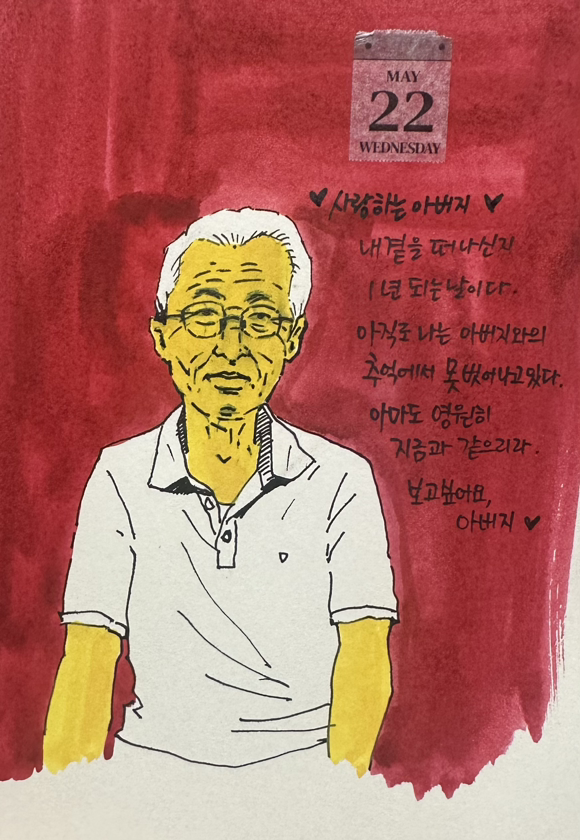 MAY
22
WEDNESDAY
♥ 사랑하는 아버지 ♥
내곁을 떠나신지
1년 되는날이다.
아직도 나는 아버지와의
추억에서 못 벗어나고있다.
아마도 영원히
지금과 같으리라.
보고싶어요,
아버지 ♥